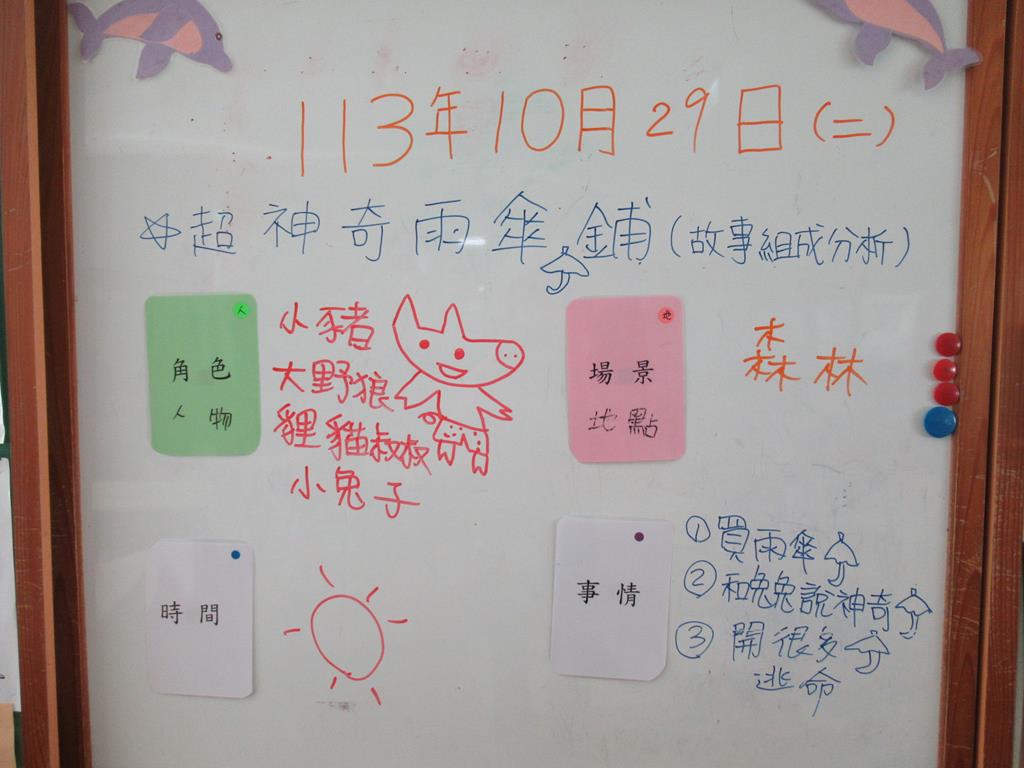 113年10月29日(二)
超神奇雨傘鋪(故事組成分析)
人
角色
人物
小豬
大野狼
貍貓叔叔
小兔子
地
場景
地點
森林
時間
事情
①買雨傘
②和兔兔說神奇
③開很多
逃命